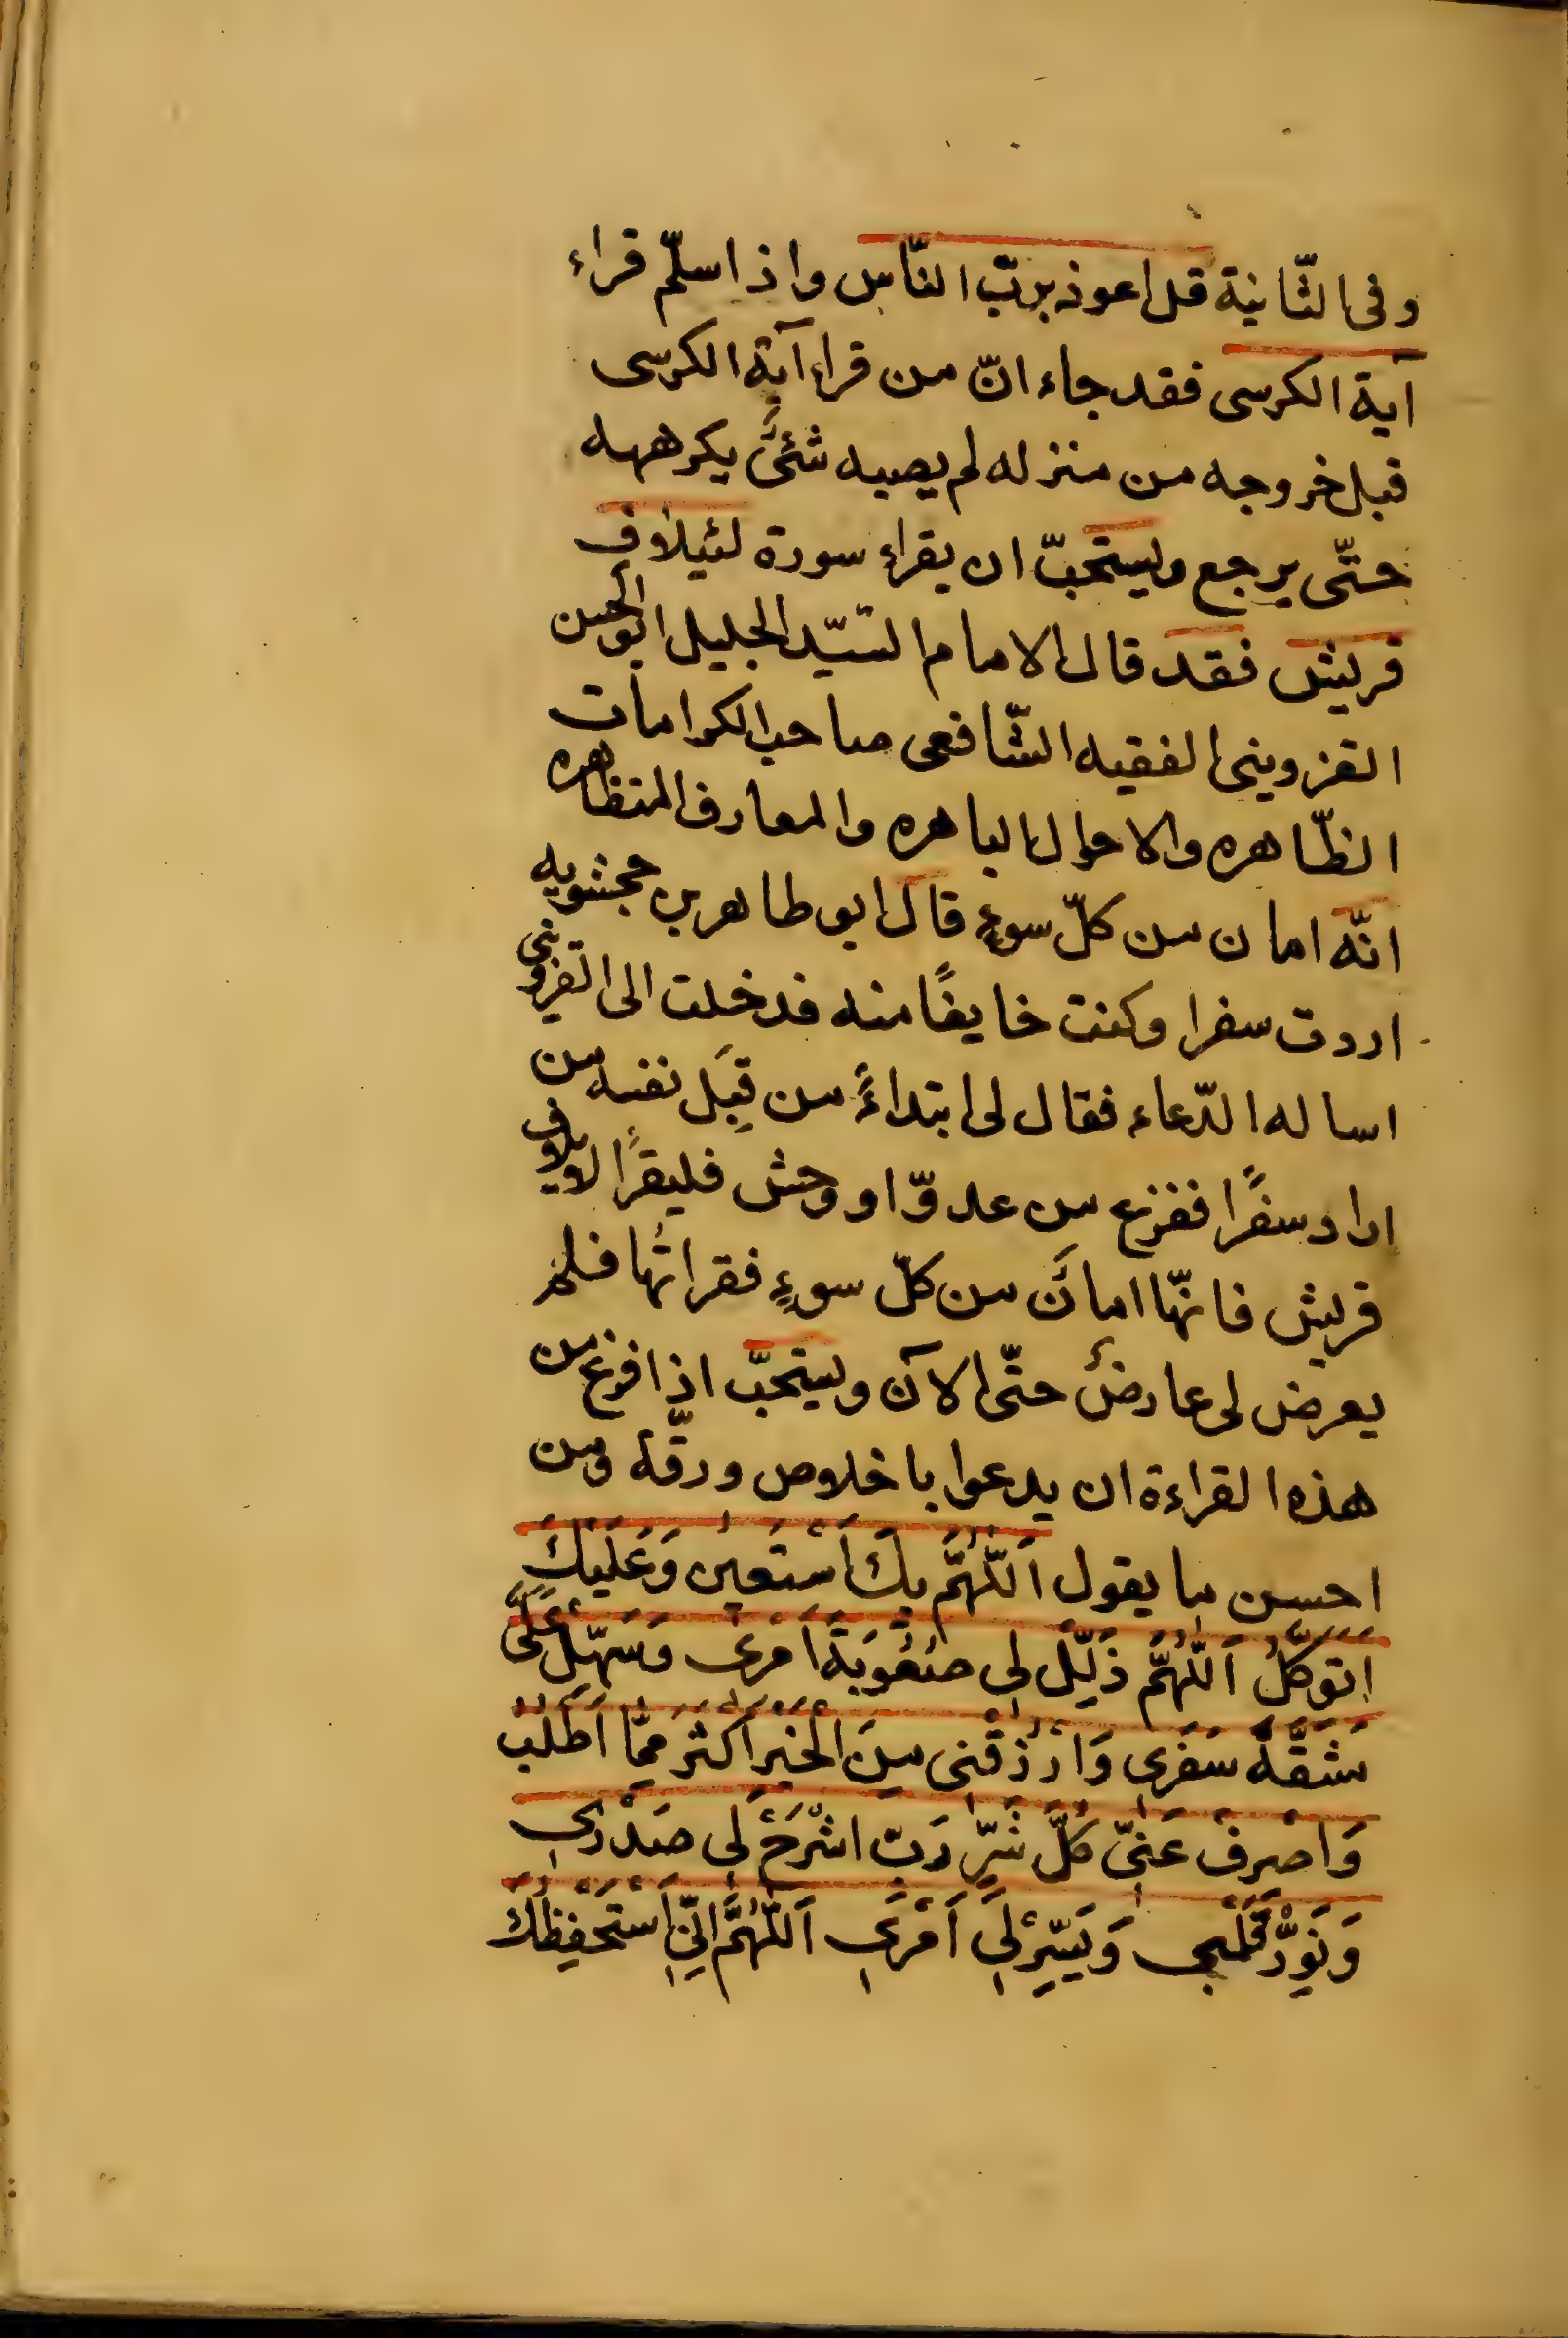 وفى الثّانية قل اعوذ بربّ النّاس واذا سلّم قراء
آية الكرسى فقد جاء انّ من قراء آية الكرسى
قبل خروجه من منزله لم يصبه شئىٌ يكرهه
حتّى يرجع ويستحبّ ان يقراء سورة لئيلاف
قريش فقد قال الامام السّيّد الجليل ابو الحسن
القزوينى الفقيه الشّافعى صاحب الكرامات
الظّاهره والاحوال الباهره والمعارف المتظاهره
انّه امان من كلّ سوءٍ قال ابو طاهر بن جحشويه
اردت سفرا وكنت خايفًا منه فدخلت الى القزوينى
اساله الدّعاء فقال لى ابتداءً من قِبَل نفسه من
اراد سفرًا ففزع من عدوّ او وحش فليقرأ لايلاف
قريش فانّها امانٌ من كلّ سوءٍ فقراتُها فلم
يعرض لى عارضٌ حتّى الآن ويستحبّ اذا فرغ من
هذه القراءة ان يدعوا باخلاص ورقّة ومن
احسن ما يقول اَللّٰهُمَّ بِكَ اَسْتَعِينُ وَعَلَيْكَ
اَتَوَكَّلُ اَللّٰهُمَّ ذَلِّلْ لِى صُعُوبَةَ اَمْرِى وَسَهِّلْ عَلَىَّ
مَشَقَّةَ سَفَرِى وَارْزُقْنِى مِنَ الْخَيْرِ اَكْثَرَ مِمَّا اَطْلُبُ
وَاصْرِفْ عَنِّى كُلَّ شَرٍّ رَبِّ اشْرَحْ لِى صَدْرِى
وَنَوِّرْ قَلْبِى وَيَسِّرْ لِى اَمْرِى اَللّٰهُمَّ اِنِّى اَسْتَحْفِظُكَ